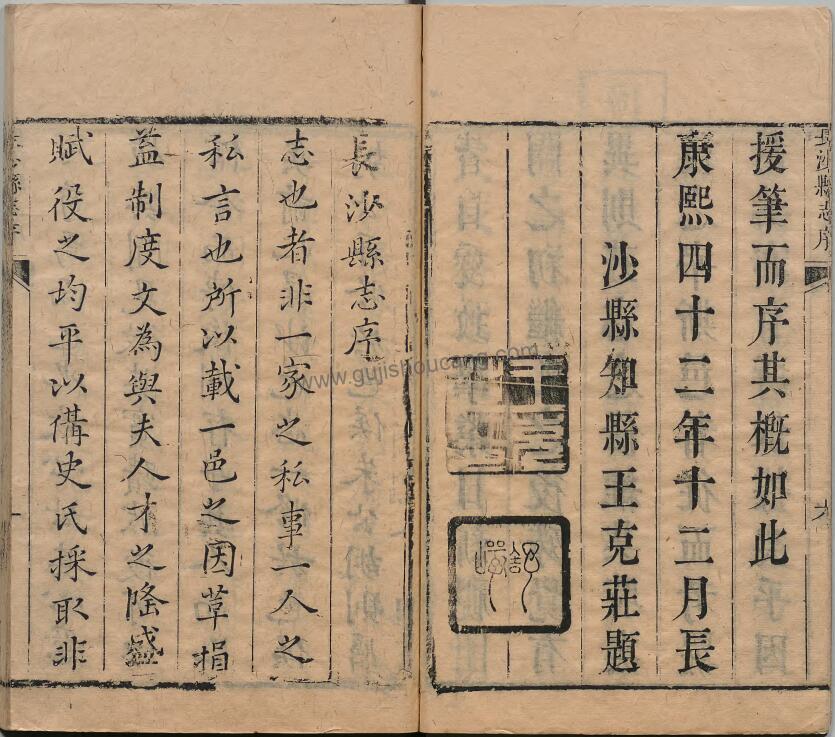 長沙縣志序
援筆而序其概如此
康熙四十二年十二月長
沙縣知縣王克莊題
長沙縣志序
志也者非一家之私事一人之
私言也所以載一邑之因革損
益制度文為與夫人才之隆盛
賦役之均平以備史氏採取非
長沙縣志序
一
www.gujishoucang.com